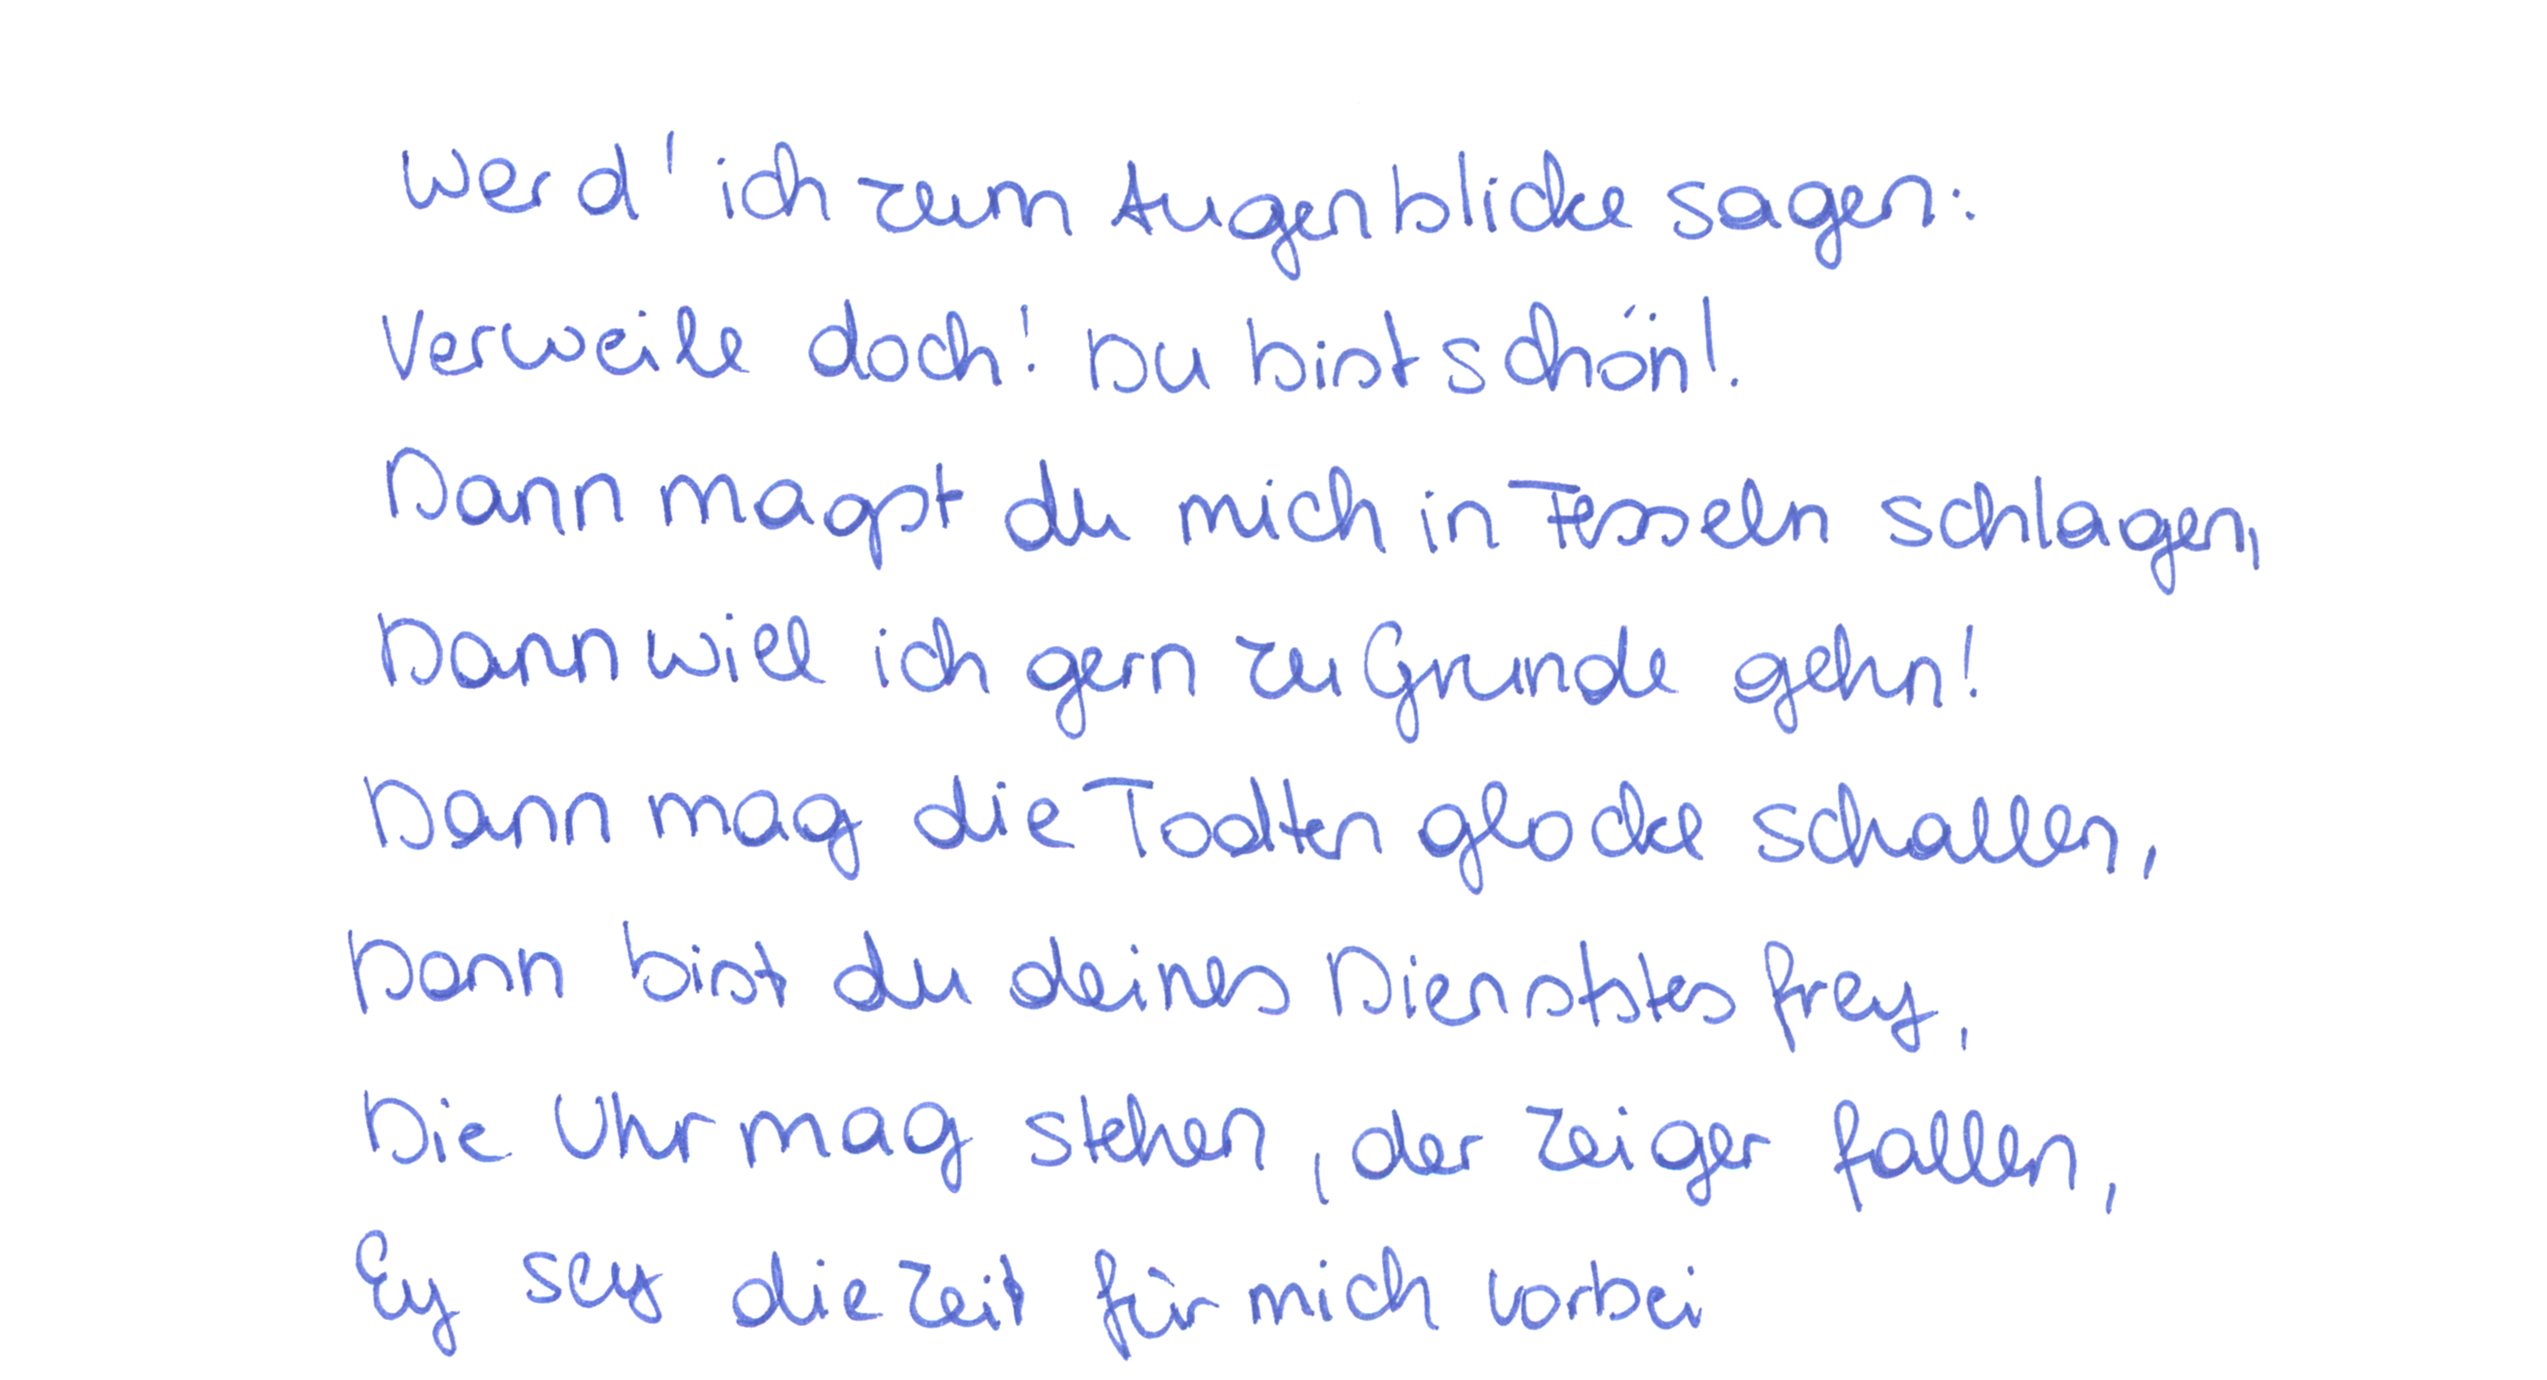 Werd' ich zum Augenblicke sagen:
Verweile doch! Du bist schön!
Dann magst du mich in Fesseln schlagen,
Dann will ich gern zu Grunde gehn!
Dann mag die Todtenglocke schallen,
Dann bist du deines Dienststes frey,
Die Uhr mag stehen, der Zeiger fallen,
Ey sey die Zeit für mich vorbei